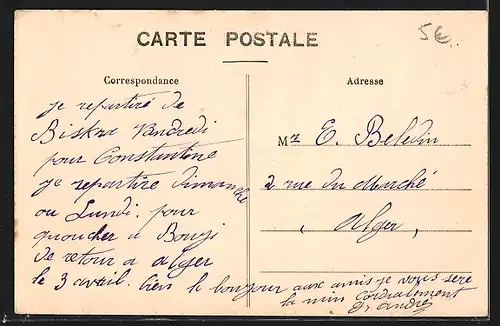 5€
CARTE POSTALE
Correspondance
je repartiré de
Biskra Vandredi
pour Constantine
je repartire dimanche
ou Lundi. pour
quoucher à Bouji
de retour a alger
le 3 avail. bien le bonjour aux amis je vous sere
la min Cordialement
andré
Adresse
Mr E. Beledin
2 rue du Marché
alger